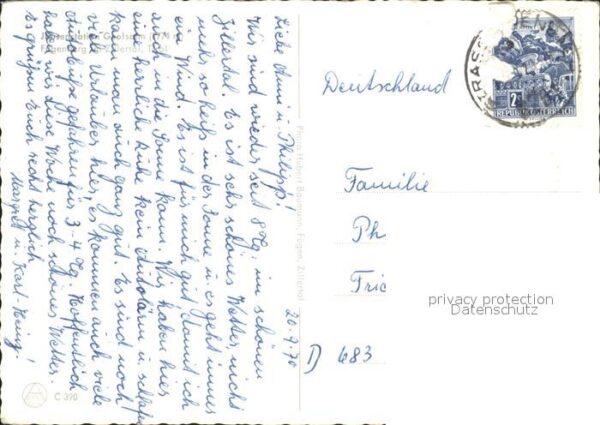 Jausenstation Goglsalm (1774 m)
Fügenberg im Zillertal, Tirol
20.9.70
Liebe Anni u. Philipp!
Wir sind wieder seit 8 Tg. im schönen
Zillertal. Es ist sehr schönes Wetter, nicht
mehr so heiß in der Sonne u. es geht immer
ein Wind. Es ist für mich gut damit ich
auch in die Sonne kann. Wir haben hier
eine herrliche Ruhe kein Autolärm u. schlafen
kann man auch ganz gut. Es sind noch
viele Urlauber hier, es kommen auch viele
Autobusse gefahren für 3-4 Tg. Hoffentlich
haben wir diese Woche noch schönes Wetter.
Es grüßen Euch recht herzlich
Margret u. Karl-Heinz!
C 390
Photo Hubert Baumann, Fügen, Zillertal
STRASS
2 S
REPUBLIK ÖSTERREICH
Deutschland
Familie
Ph
Fric
D 683
privacy protection
Datenschutz